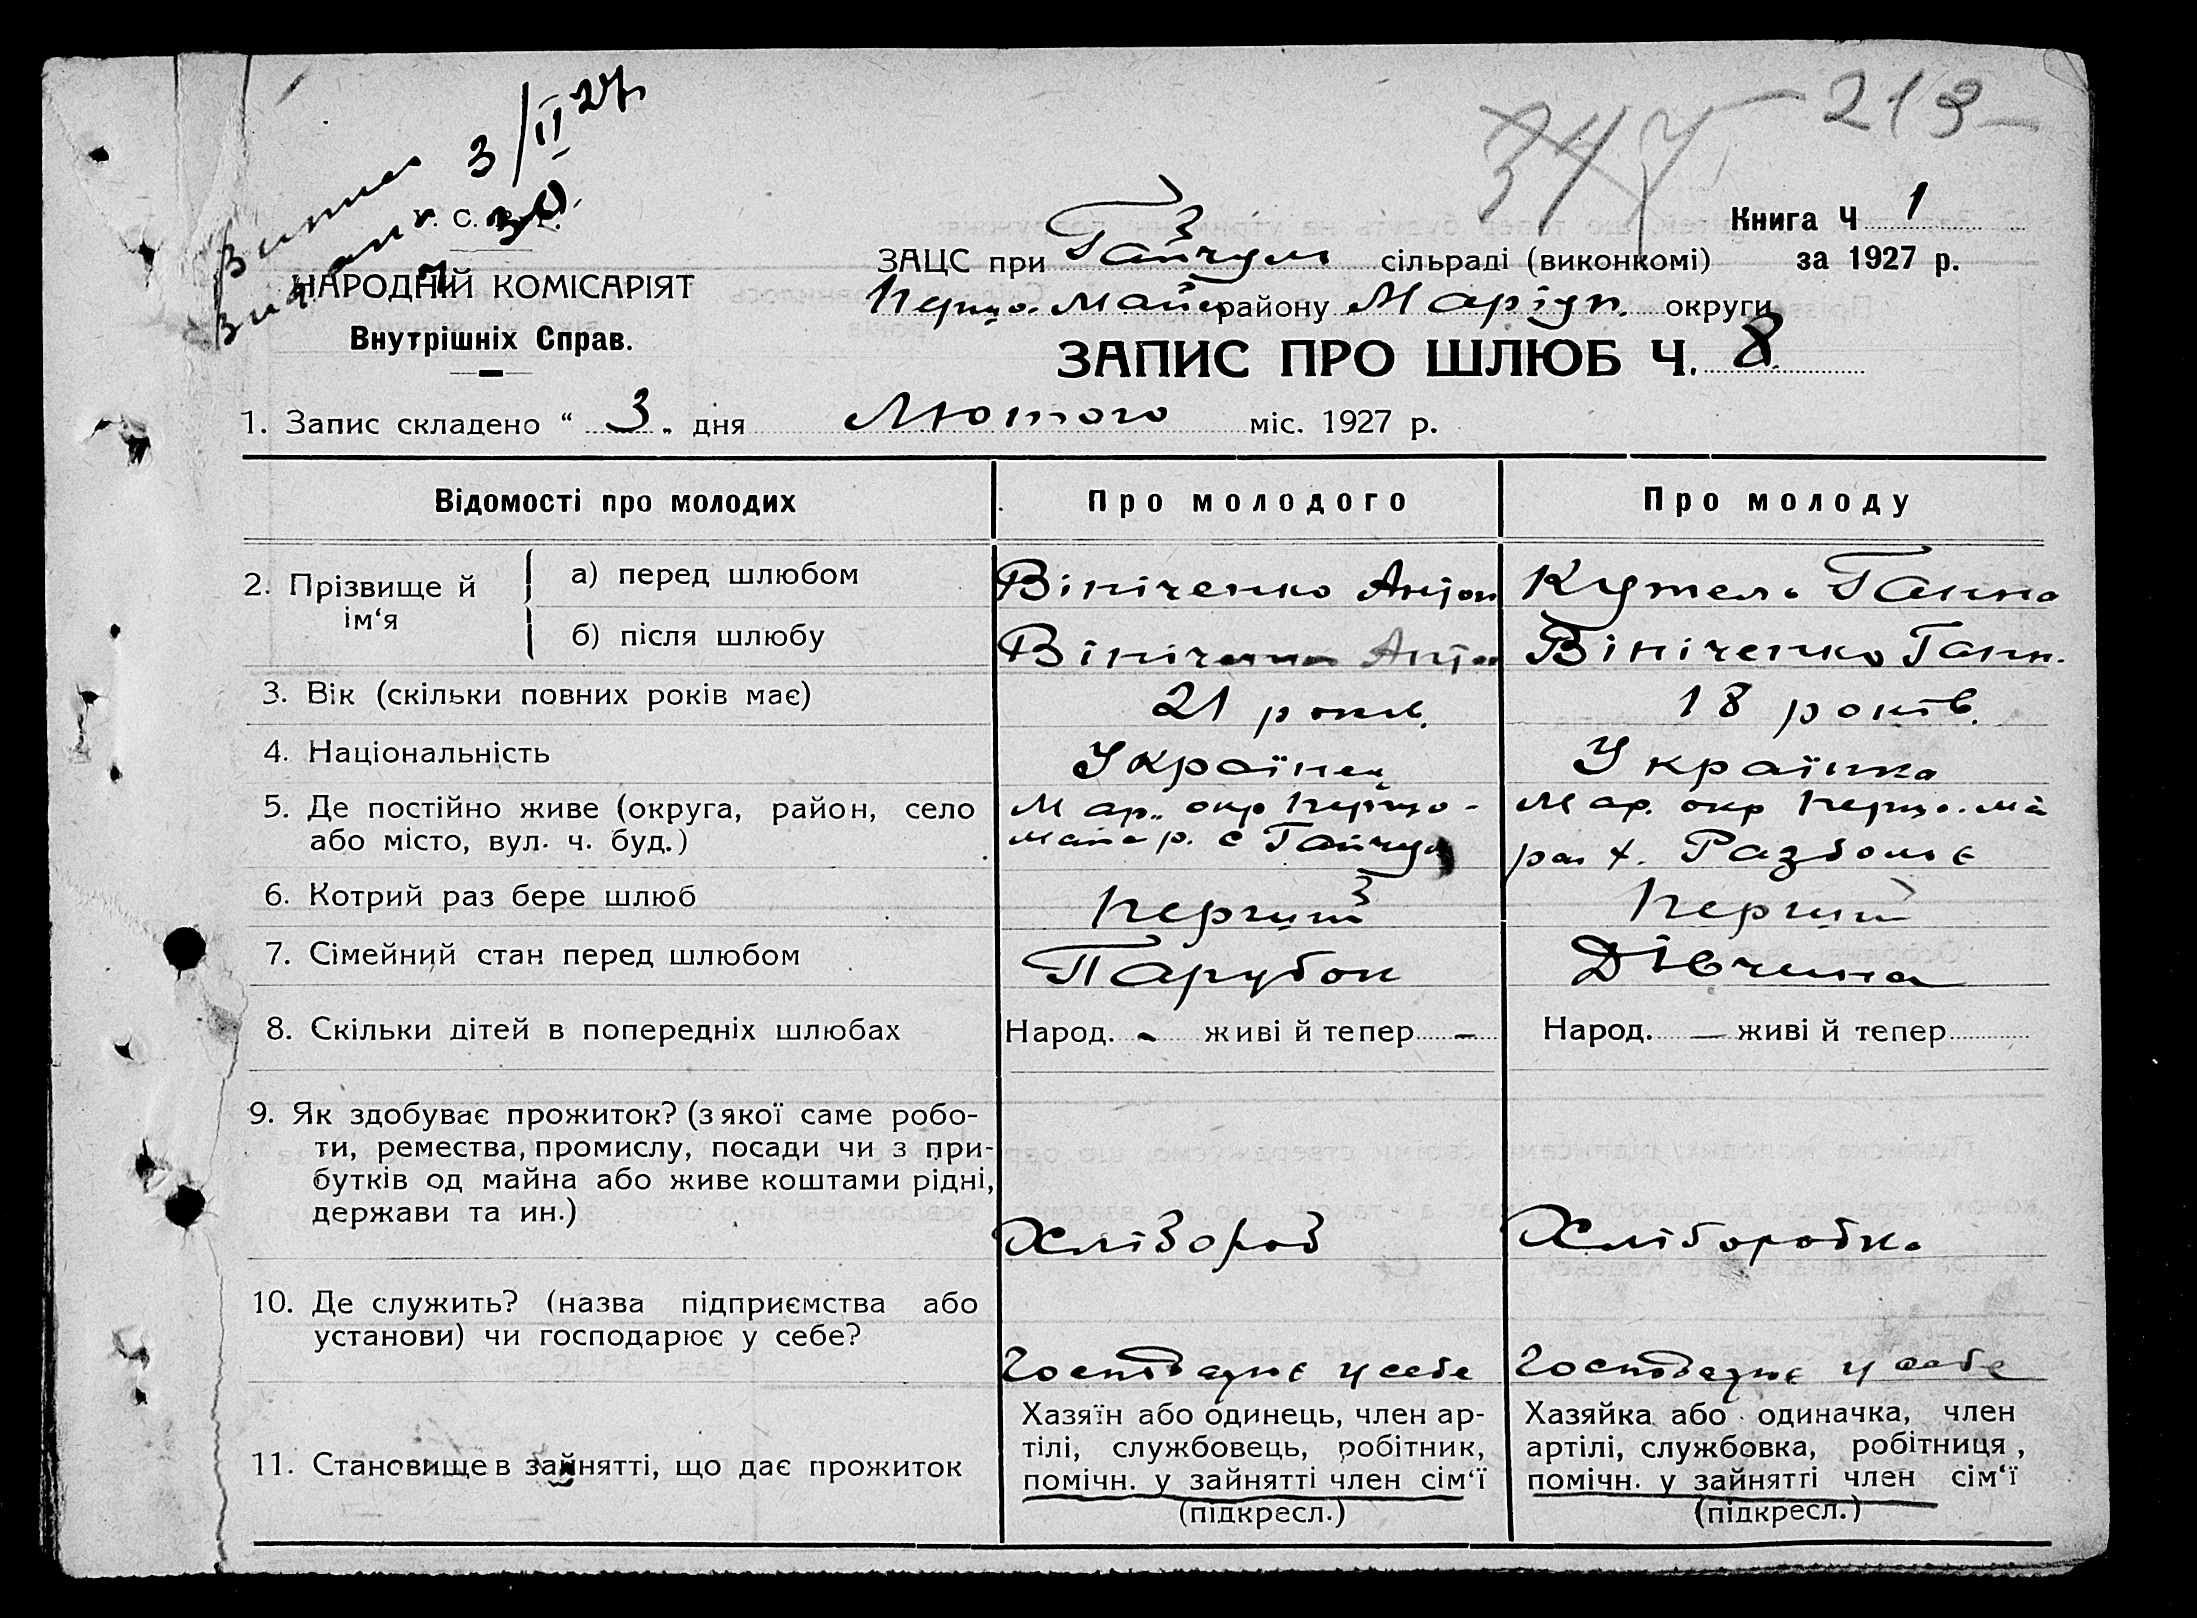 347 213
3/II 27
У. С. Р. Р.
Книга Ч 1
ЗАЦС при Гайчул сільраді (виконкомі) за 1927 р.
НАРОДНІЙ КОМІСАРІЯТ
Першо.Майс району Маріуп. округи
Внутрішніх Справ.
ЗАПИС ПРО ШЛЮБ Ч. 8
1. Запис складено “ 3 „ дня Лютого міс. 1927 р.
Відомості про молодих Про молодого Про молоду
2. Прізвище й ім‘я
а) перед шлюбом Вініченко Антон Кутель Ганна
б) після шлюбу Вініченко Антон Вініченко Ганн.
3. Вік (скільки повних років має) 21 років. 18 років.
4. Національність Українец Українка
5. Де постійно живе (округа, район, село Мар. окр Першо- Мар. окр Першо.ма
або місто, вул. ч. буд.) май р. с Гайчул ра х. Разболье
6. Котрий раз бере шлюб Перший Перший
7. Сімейний стан перед шлюбом Парубок Дівчина
8. Скільки дітей в попередніх шлюбах Народ. - живі й тепер - Народ. — живі й тепер
9. Як здобуває прожиток? (з якої саме робо-
ти, ремества, промислу, посади чи з при-
бутків од майна або живе коштами рідні,
держави та ин.) Хлібороб Хліборобка
10. Де служить? (назва підприємства або
установи) чи господарює у себе?
Господарює у себе Господарює у себе
11. Становище в зайнятті, що дає прожиток
Хазяїн або одинець, член ар-
тілі, службовець, робітник,
помічн. у зайнятті член сім‘ї
(підкресл.)
Хазяйка або одиначка, член
артілі, службовка, робітниця,
помічн. у зайнятті член сім‘ї
(підкресл.)